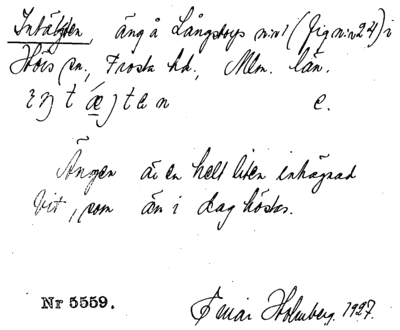 Intäkten, äng å Långstorps n:r 1 (fig n:r 24) i
Hörs sn., Frosta hd., Mlm. län.
e.
Ängen är en helt liten inhägnad
bit, som än i dag höstas.
Nr 5559.
Einar Holmberg. 1927.